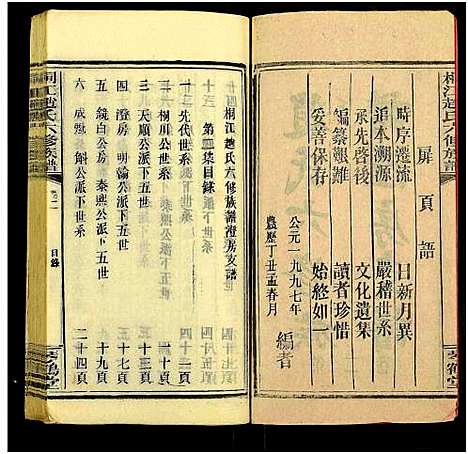 桐江趙氏六修族譜
扉頁語
時序遷流　日新月異
追本溯源　嚴稽世系
承先啓後　文化遺集
編纂艱難　讀者珍惜
妥善保存　始終如一
編者
公元一九九七年
農歷丁丑孟春月
桐江趙氏六修族譜澄房支譜
第二集目录
一　先代世系　一頁
二　桐川公派下五世系
三　天順公派下五世系　十二頁
四　明翰公派下五世系　十七頁
五　鏡白公房　秦熙公派下五世　十九頁
六　成　　　　公派下世系　二十四頁
桐江趙氏六修族譜
目錄
琴鶴堂